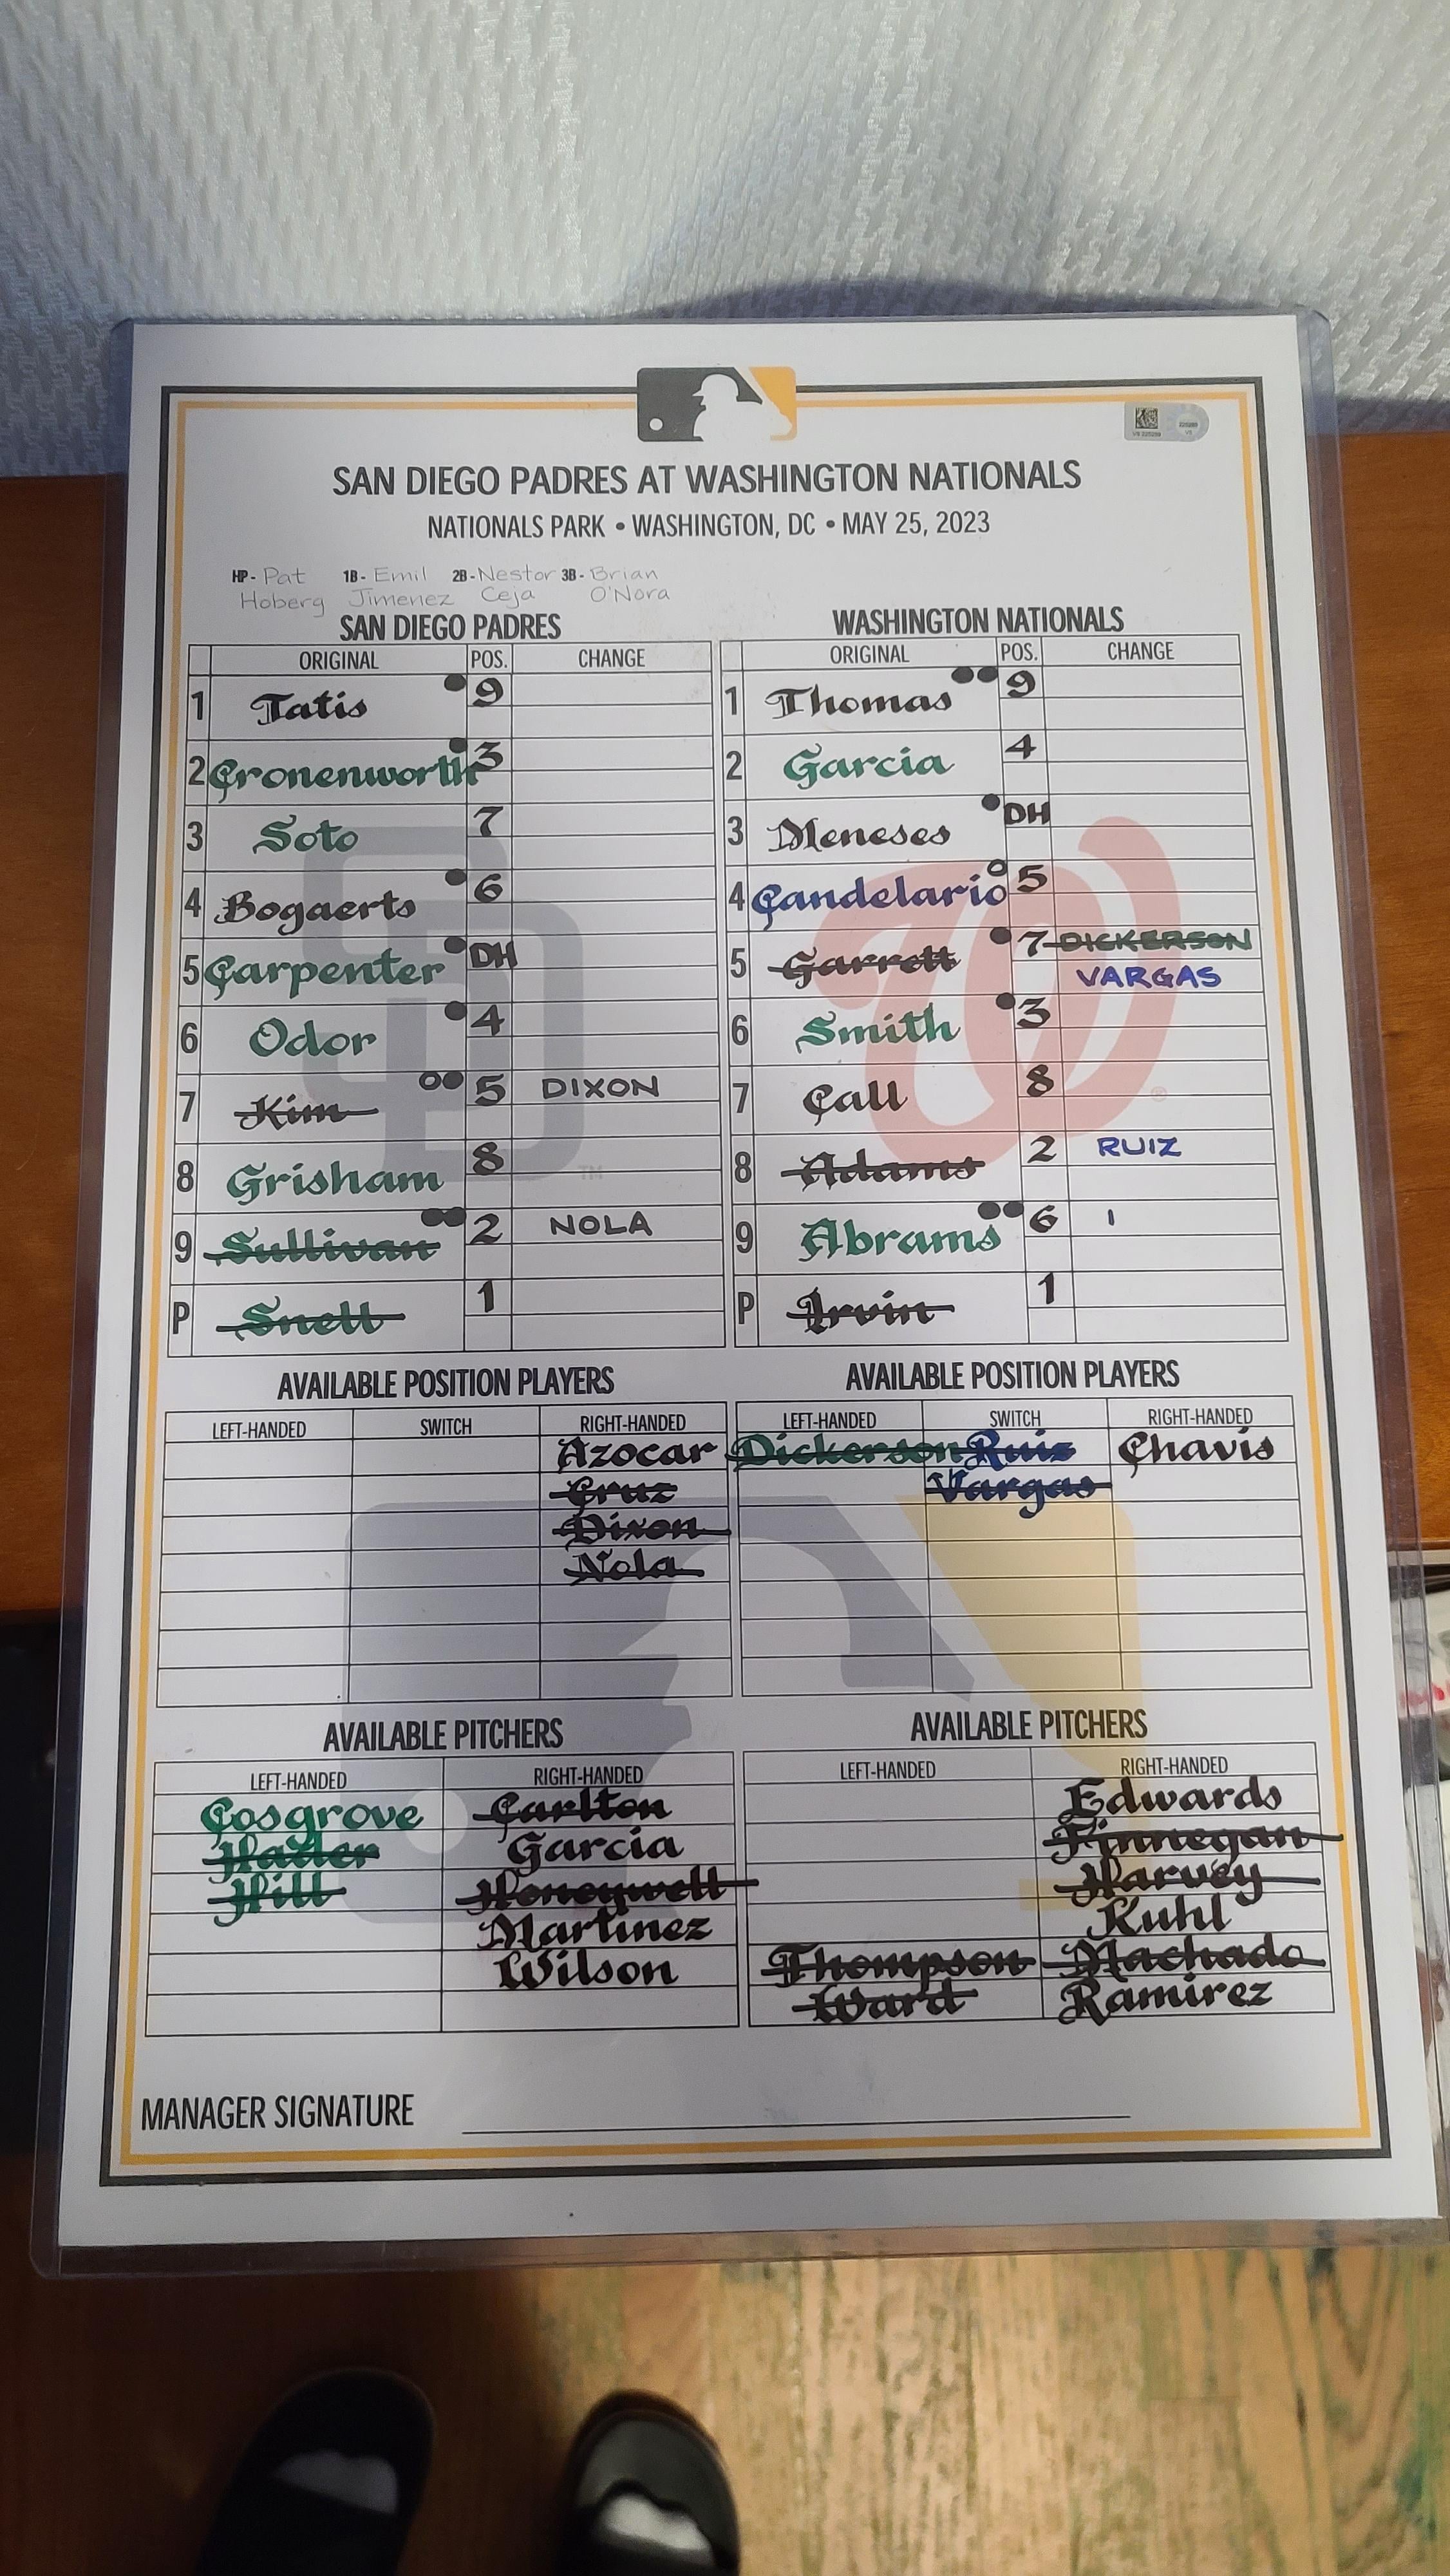 SAN DIEGO PADRES AT WASHINGTON NATIONALS
NATIONALS PARK • WASHINGTON, DC • MAY 25, 2023
HP- Pat Hoberg 1B- Emil Jimenez 2B- Nestor Ceja 3B- Brian O'Nora
SAN DIEGO PADRES
ORIGINAL POS. CHANGE
1 Tatis 9
2 Cronenworth 3
3 Soto 7
4 Bogaerts 6
5 Carpenter DH
6 Odor 4
7 Kim 5 DIXON
8 Grisham 8
9 Sullivan 2 NOLA
P Snell 1
WASHINGTON NATIONALS
ORIGINAL POS. CHANGE
1 Thomas 9
2 Garcia 4
3 Meneses DH
4 Candelario 5
5 Garrett 7 DICKERSON
VARGAS
6 Smith 3
7 Call 8
8 Adams 2 RUIZ
9 Abrams 6 I
P Irvin 1
AVAILABLE POSITION PLAYERS
LEFT-HANDED SWITCH RIGHT-HANDED
Azocar
Cruz
Dixon
Nola
AVAILABLE POSITION PLAYERS
LEFT-HANDED SWITCH RIGHT-HANDED
Dickerson Ruiz Chavis
Vargas
AVAILABLE PITCHERS
LEFT-HANDED RIGHT-HANDED
Cosgrove Carlton
Hader Garcia
Hill Honeywell
Martinez
Wilson
AVAILABLE PITCHERS
LEFT-HANDED RIGHT-HANDED
Edwards
Finnegan
Harvey
Kuhl
Thompson Machado
Ward Ramirez
MANAGER SIGNATURE